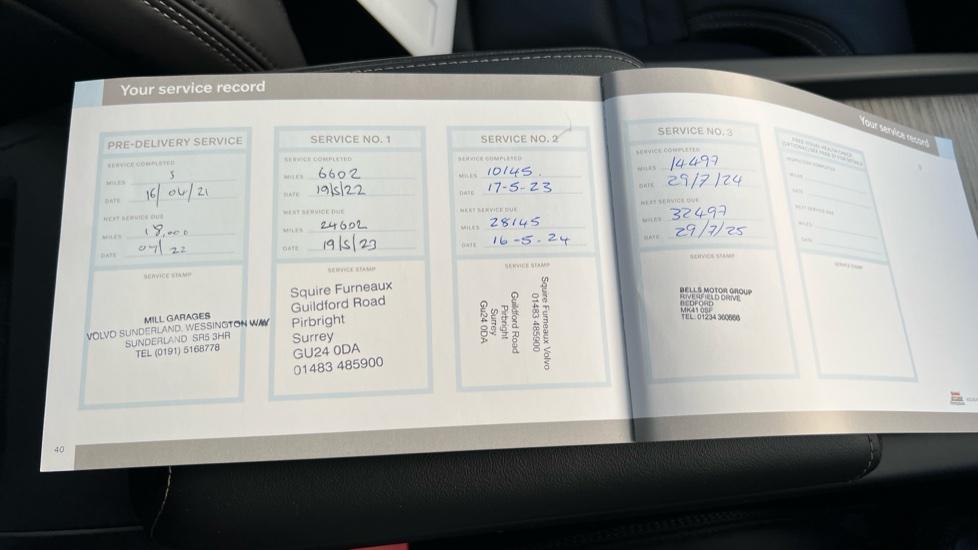 Your service record
PRE-DELIVERY SERVICE
SERVICE COMPLETED
MILES 5
DATE 16/04/21
NEXT SERVICE DUE
MILES 18,000
DATE 04/22
SERVICE STAMP
MILL GARAGES
VOLVO SUNDERLAND, WESSINGTON WAY
SUNDERLAND SR5 3HR
TEL (0191) 5168778
SERVICE NO. 1
SERVICE COMPLETED
MILES 6602
DATE 19/5/22
NEXT SERVICE DUE
MILES 24602
DATE 19/5/23
SERVICE STAMP
Squire Furneaux
Guildford Road
Pirbright
Surrey
GU24 0DA
01483 485900
SERVICE NO. 2
SERVICE COMPLETED
MILES 10145.
DATE 17-5-23
NEXT SERVICE DUE
MILES 28145
DATE 16-5-24
SERVICE STAMP
Squire Furneaux Volvo
01483 485900
Guildford Road
Pirbright
Surrey
Gu24 0DA
40
SERVICE NO. 3
SERVICE COMPLETED
MILES 14497
DATE 29/7/24
NEXT SERVICE DUE
MILES 32497
DATE 29/7/25
SERVICE STAMP
BELLS MOTOR GROUP
RIVERFIELD DRIVE
BEDFORD
MK41 0SF
TEL: 01234
Your service record
MILES
DATE
NEXT SERVICE DUE
MILES
DATE
SERVICE STAMP